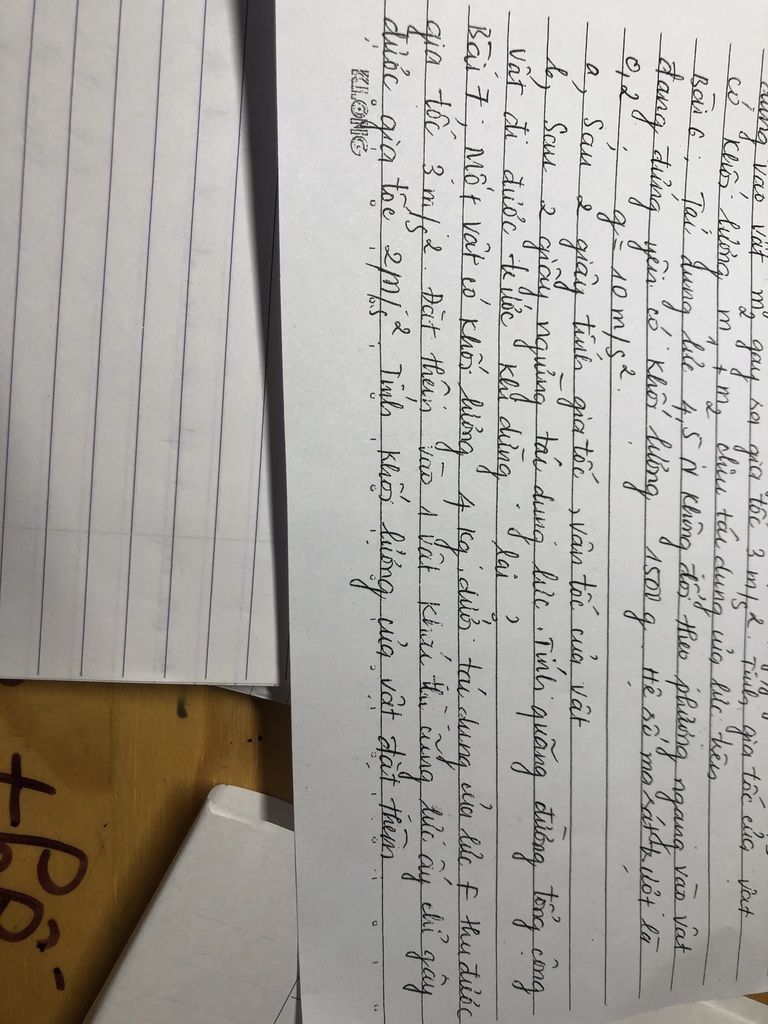 vào vật m2 gây ra gia tốc 3 m/s². Tính gia tốc của vật
có khối lượng m1 + m2 chịu tác dụng của lực trên
Bài 6, Tác dụng lực 4,5 N không đổi theo phương ngang vào vật
đang đứng yên có khối lượng 1500 g. Hệ số ma sát trượt là
0,2, g = 10 m/s².
a, Sau 2 giây tính gia tốc, vận tốc của vật
b, Sau 2 giây ngừng tác dụng lực. Tính quãng đường tổng cộng
vật đi được trước khi dừng lại,
Bài 7, Một vật có khối lượng 4 kg, dưới tác dụng của lực F thu được
gia tốc 3 m/s². Đặt thêm vào 1 vật khác thì cũng lực ấy chỉ gây
được gia tốc 2 m/s². Tính khối lượng của vật đặt thêm
KLONG